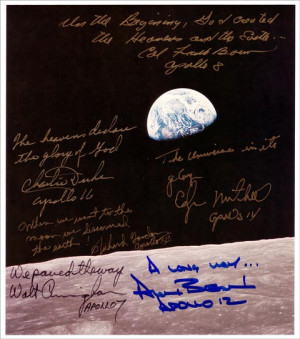 In the Beginning, God created
the Heavens and the Earth...
Col Frank Borman
Apollo 8
The heavens declare
the glory of God
Charlie Duke
Apollo 16
The Universe in its
glory
Edgar Mitchell
Apollo 14
When we went to the
moon we discovered
the earth
Richard Gordon
We paved the way
Walt Cunningham
APOLLO 7
A long way...
Alan Bean
APOLLO 12